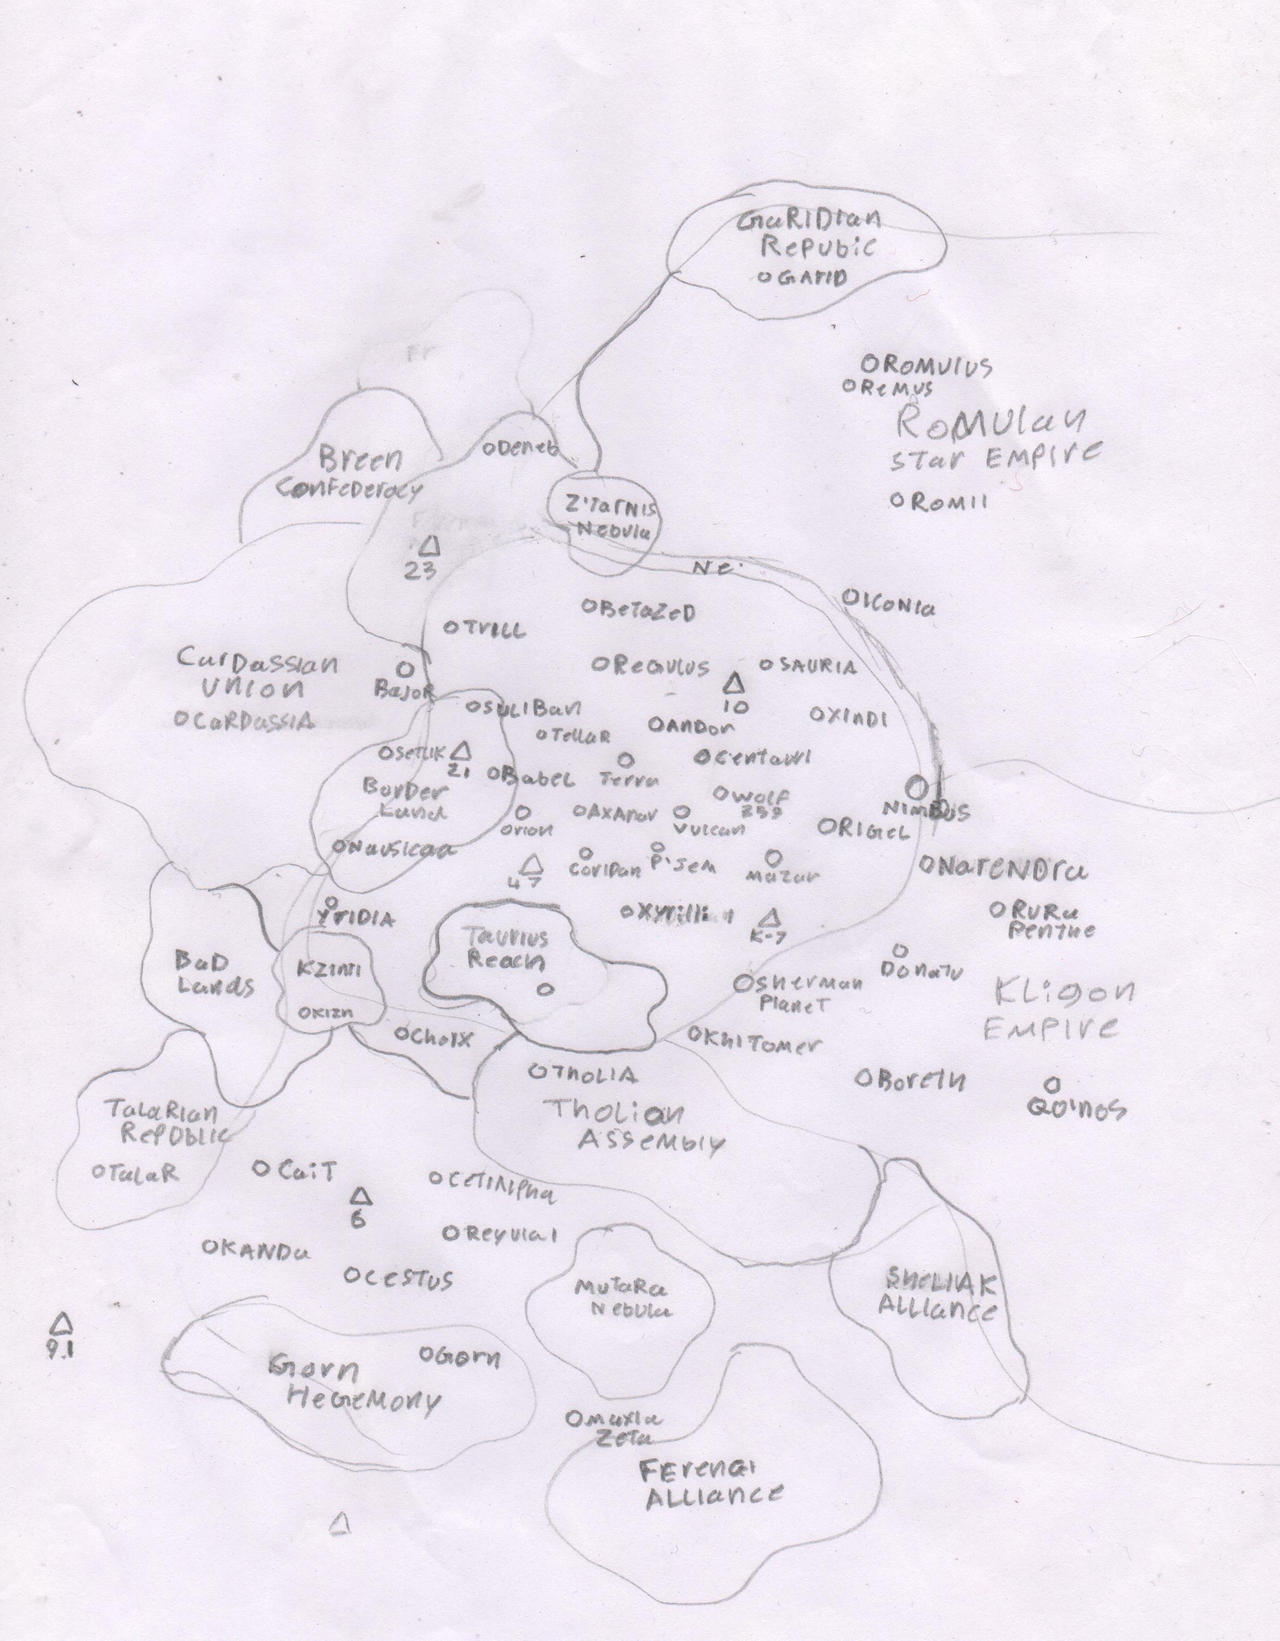 GaRIDIan
RePubic
GARID
ROMULUS
ReMUS
RoMULan
STar EMPIRE
ROMII
Deneb
Breen
ConFeDeracy
Z'TarNIS
Nebula
23
Ne.
ICONIA
BeTaZeD
TrILL
CarDassIan
UnIon
CaRDassIA
BaJoR
ReGULUS
SAURIA
10
SULIBan
ANDor
XINDI
TellaR
SeTLIK
21
Babel
Terra
Centauri
BorDer
Land
Wolf
359
NIMBUS
OrIon
AXAnar
Vulcan
RIGeL
NausIcaa
47
CorIDan
P'Jem
Mazar
NarenDra
YrIDIA
K-7
RURa
PenThe
Taurus
Reach
BaD
Lands
KZINTI
KIZn
DonaTu
SHerman
PlaneT
KLigon
EMPIRE
CholX
KHITomer
THOLIA
THoLIan
ASSeMbly
BoreTH
QO'noS
TaLaRIan
RePUbLIc
TaLaR
CaIT
6
KANDa
CESTUS
MUTaRa
Nebula
SHeLIAK
ALLIance
91
Gorn
Gorn
HeGeMony
MaxIa
ZeTa
FErenGI
ALLIANCE